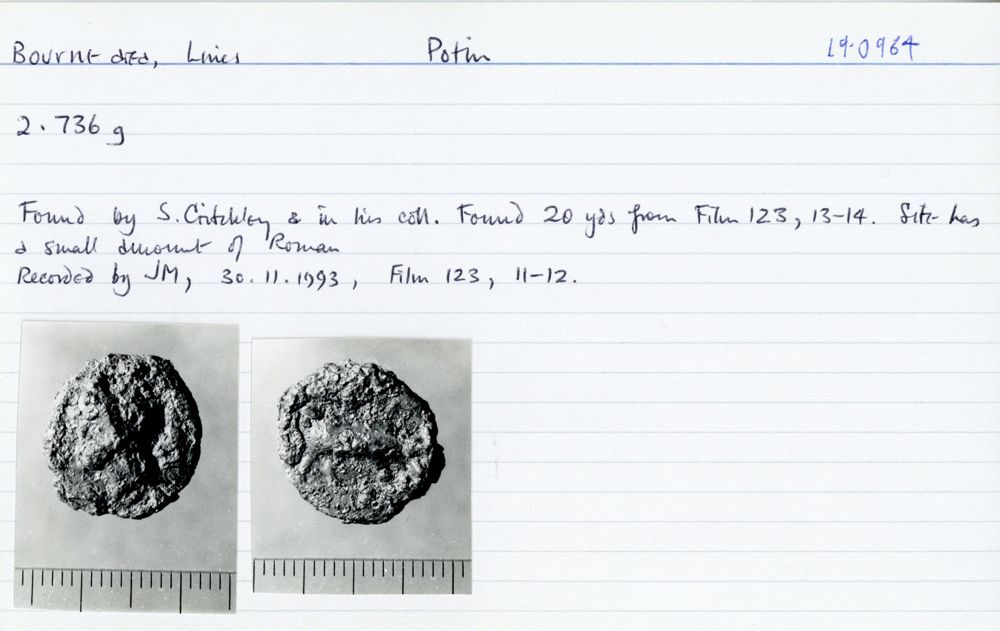 Bourne area, Lincs Potin 19-0964
2.736 g
Found by S. Critchley & in his coll. Found 20 yds from Film 123, 13-14. Site has
a small amount of Roman
Recorded by JM, 30.11.1993, Film 123, 11-12.